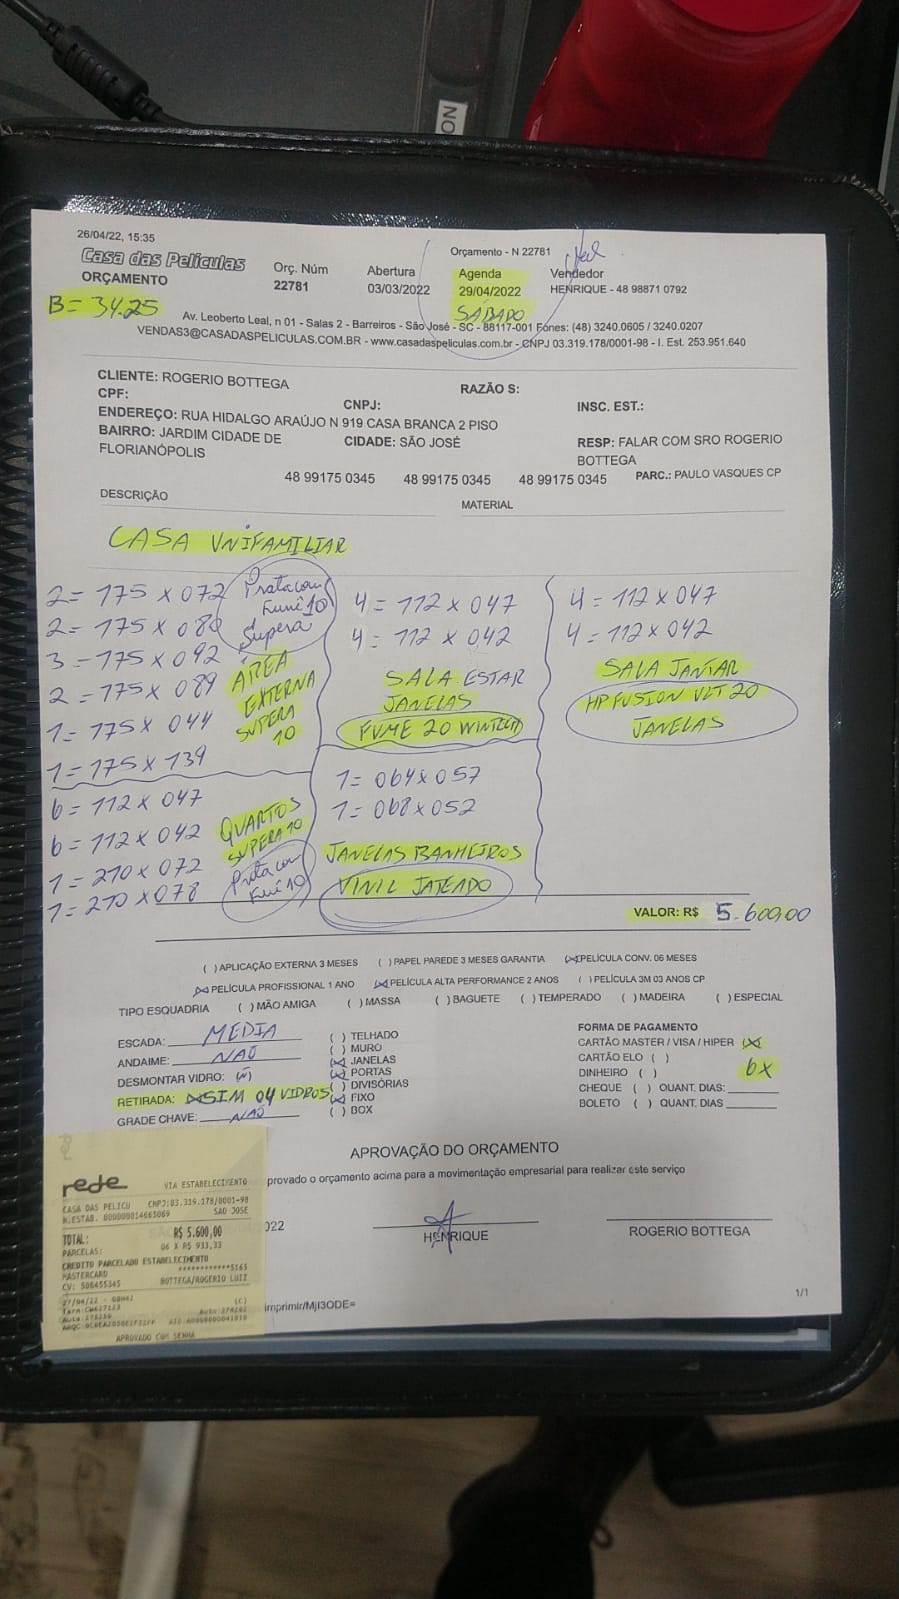 NO
26/04/22, 15:35
Casa das Películas
ORÇAMENTO
Orç. Núm
22781
Abertura
03/03/2022
Orçamento - N 22781
Agenda
29/04/2022
SÁBADO
Vendedor
HENRIQUE - 48 98871 0792
B= 34.25
Av. Leoberto Leal, n 01 - Salas 2 - Barreiros - São José - SC - 88117-001 Fones: (48) 3240.0605 / 3240.0207
VENDAS3@CASADASPELICULAS.COM.BR - www.casadaspeliculas.com.br - CNPJ 03.319.178/0001-98 - I. Est. 253.951.640
CLIENTE: ROGERIO BOTTEGA
RAZÃO S:
CPF:
CNPJ:
INSC. EST.:
ENDEREÇO: RUA HIDALGO ARAÚJO N 919 CASA BRANCA 2 PISO
BAIRRO: JARDIM CIDADE DE FLORIANÓPOLIS
CIDADE: SÃO JOSÉ
RESP: FALAR COM SRO ROGERIO BOTTEGA
48 99175 0345 48 99175 0345 48 99175 0345
PARC.: PAULO VASQUES CP
DESCRIÇÃO
MATERIAL
CASA UNIFAMILIAR
2= 175 X 072
2= 175 X 080
3= 175 X 092
2= 175 X 089
1= 175 X 044
1= 175 X 139
Prata com
Fumê 10
Supera
ÁREA
EXTERNA
SUPERA
10
6= 112 X 047
6= 112 X 042
1= 210 X 072
1= 210 X 078
QUARTOS
SUPERA 10
Prata com
Fumê 10
4= 112 X 047
4= 112 X 042
SALA ESTAR
JANELAS
FUME 20 WINTECH
1= 064 X 057
1= 068 X 052
JANELAS BANHEIROS
VINIL JATEADO
4= 112 X 047
4= 112 X 042
SALA JANTAR
HP FUSION VLT 20
JANELAS
VALOR: R$ 5.600,00
( ) APLICAÇÃO EXTERNA 3 MESES ( ) PAPEL PAREDE 3 MESES GARANTIA (X) PELÍCULA CONV. 06 MESES
(X) PELÍCULA PROFISSIONAL 1 ANO (X) PELÍCULA ALTA PERFORMANCE 2 ANOS ( ) PELÍCULA 3M 03 ANOS CP
TIPO ESQUADRIA ( ) MÃO AMIGA ( ) MASSA ( ) BAGUETE ( ) TEMPERADO ( ) MADEIRA ( ) ESPECIAL
ESCADA: MEDIA
ANDAIME: NAÕ
DESMONTAR VIDRO: (N)
RETIRADA: (X) SIM 04 VIDROS
GRADE CHAVE: NAÕ
( ) TELHADO
( ) MURO
(X) JANELAS
(X) PORTAS
( ) DIVISÓRIAS
(X) FIXO
( ) BOX
FORMA DE PAGAMENTO
CARTÃO MASTER / VISA / HIPER (X)
CARTÃO ELO ( )
6x
DINHEIRO ( )
CHEQUE ( ) QUANT. DIAS:
BOLETO ( ) QUANT. DIAS
APROVAÇÃO DO ORÇAMENTO
provado o orçamento acima para a movimentação empresarial para realizar este serviço
022
HENRIQUE
ROGERIO BOTTEGA
imprimir/MjI3ODE=
1/1
rede
VIA ESTABELECIMENTO
CASA DAS PELICU CNPJ:03.319.178/0001-98
N.ESTAB. 000000014665069 SAO JOSE
TOTAL: R$ 5.600,00
PARCELAS: 06 X R$ 933,33
CREDITO PARCELADO ESTABELECIMENTO
MASTERCARD ************5165
CV: 508455345 BOTTEGA/ROGERIO LUIZ
APROVADO COM SENHA